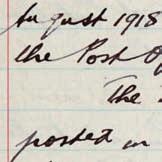 August 1918
the Post
The
posted in